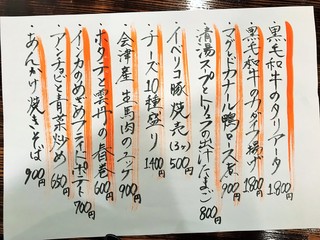 ・黒毛和牛のタリアータ 1800円
・黒毛和牛のカダイフ揚げ 1800円
・マグレドカナール鴨ロース煮 900円
・清湯スープとトリュフの出汁たまご 800円
・イベリコ豚焼売(3ヶ) 500円
・チーズ10種盛り 1400円
・会津産 生馬肉のユッケ 900円
・ホタテと雲丹の春巻 600円
・インカのめざめフライドポテト 700円
・アンチョビと青菜炒め 650円
・あんかけ焼きそば 900円